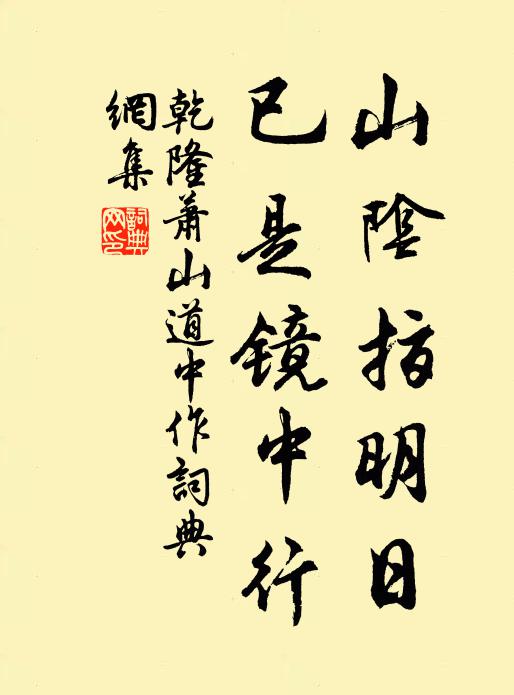 山陰指明日
已是镜中行
乾隆蕭山道中作詞典
網集
詞典
网印